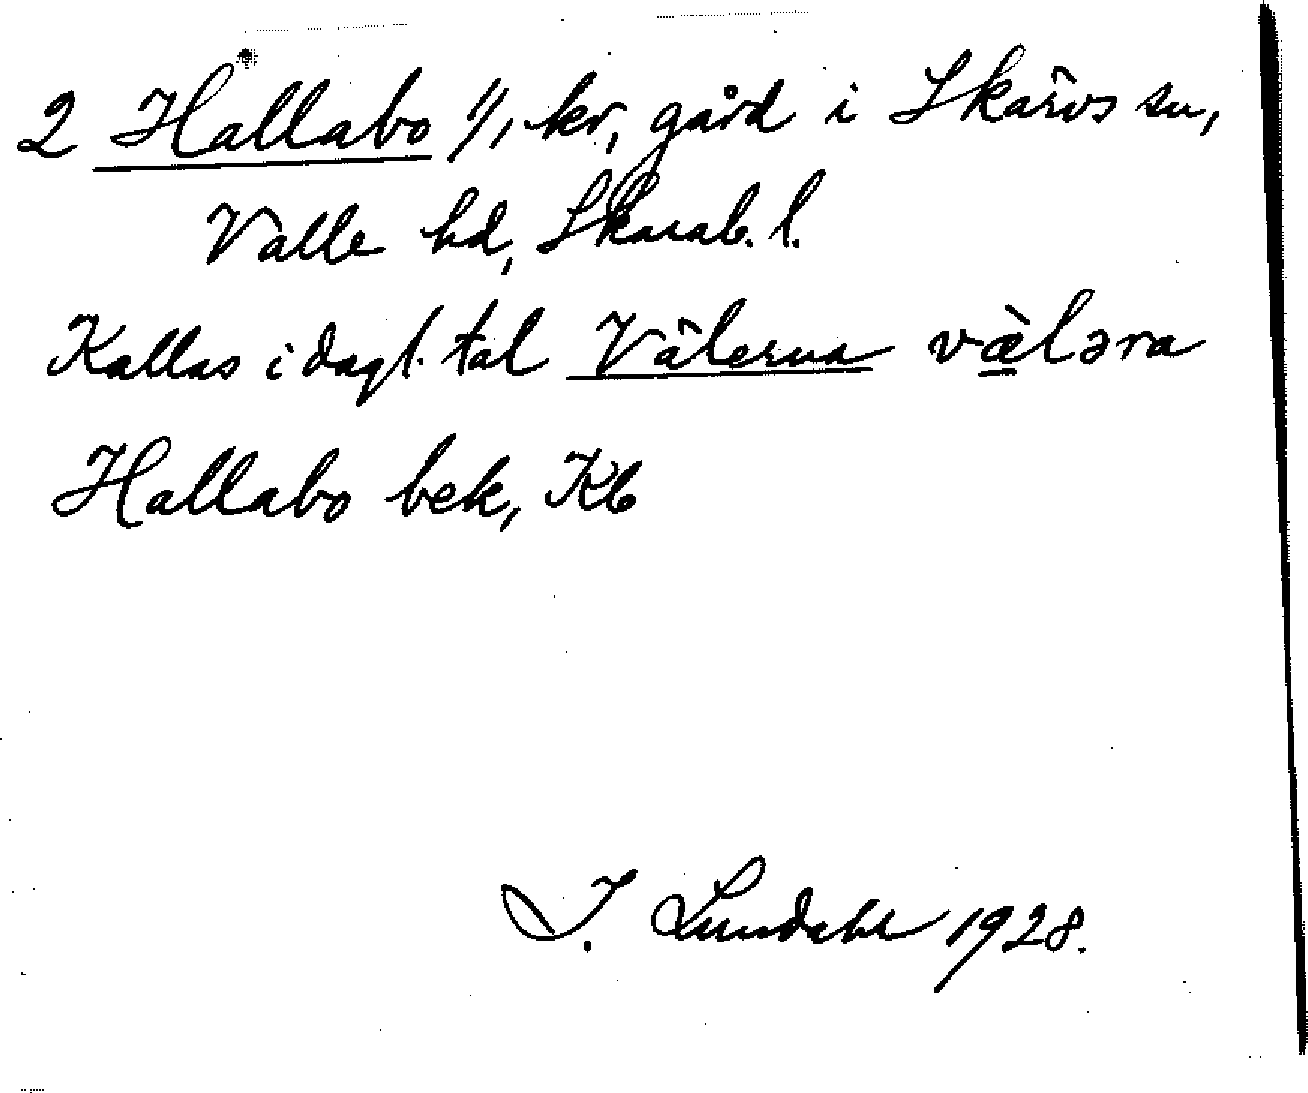 2 Hallabo 1/1 kr, gård i Skärvs sn,
Valle hd, Skarab. l.
Kallas i dagl. tal Välerna væ̀lərna
Hallabo bek, Kb
I. Lundahl 1928.